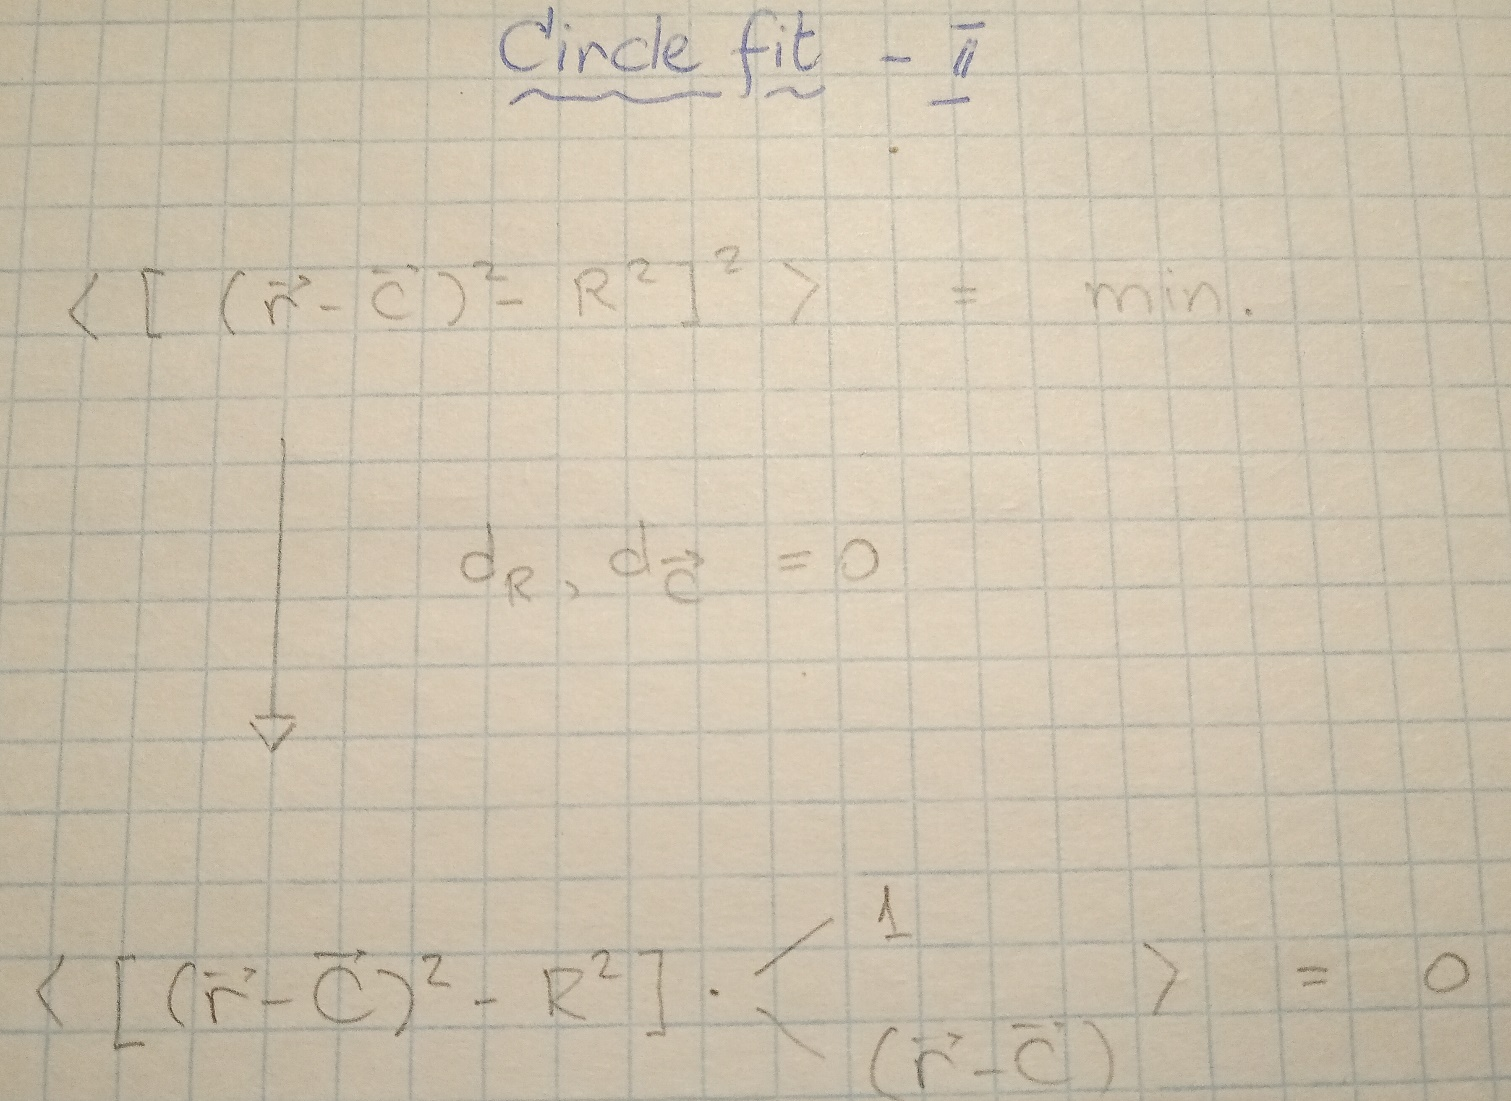 Circle fit - II
< [ (r⃗ - C⃗)² - R² ]² > = min.
d_R, d_C⃗ = 0
1
< [ (r⃗ - C⃗)² - R² ] · > = 0
(r⃗ - C⃗)